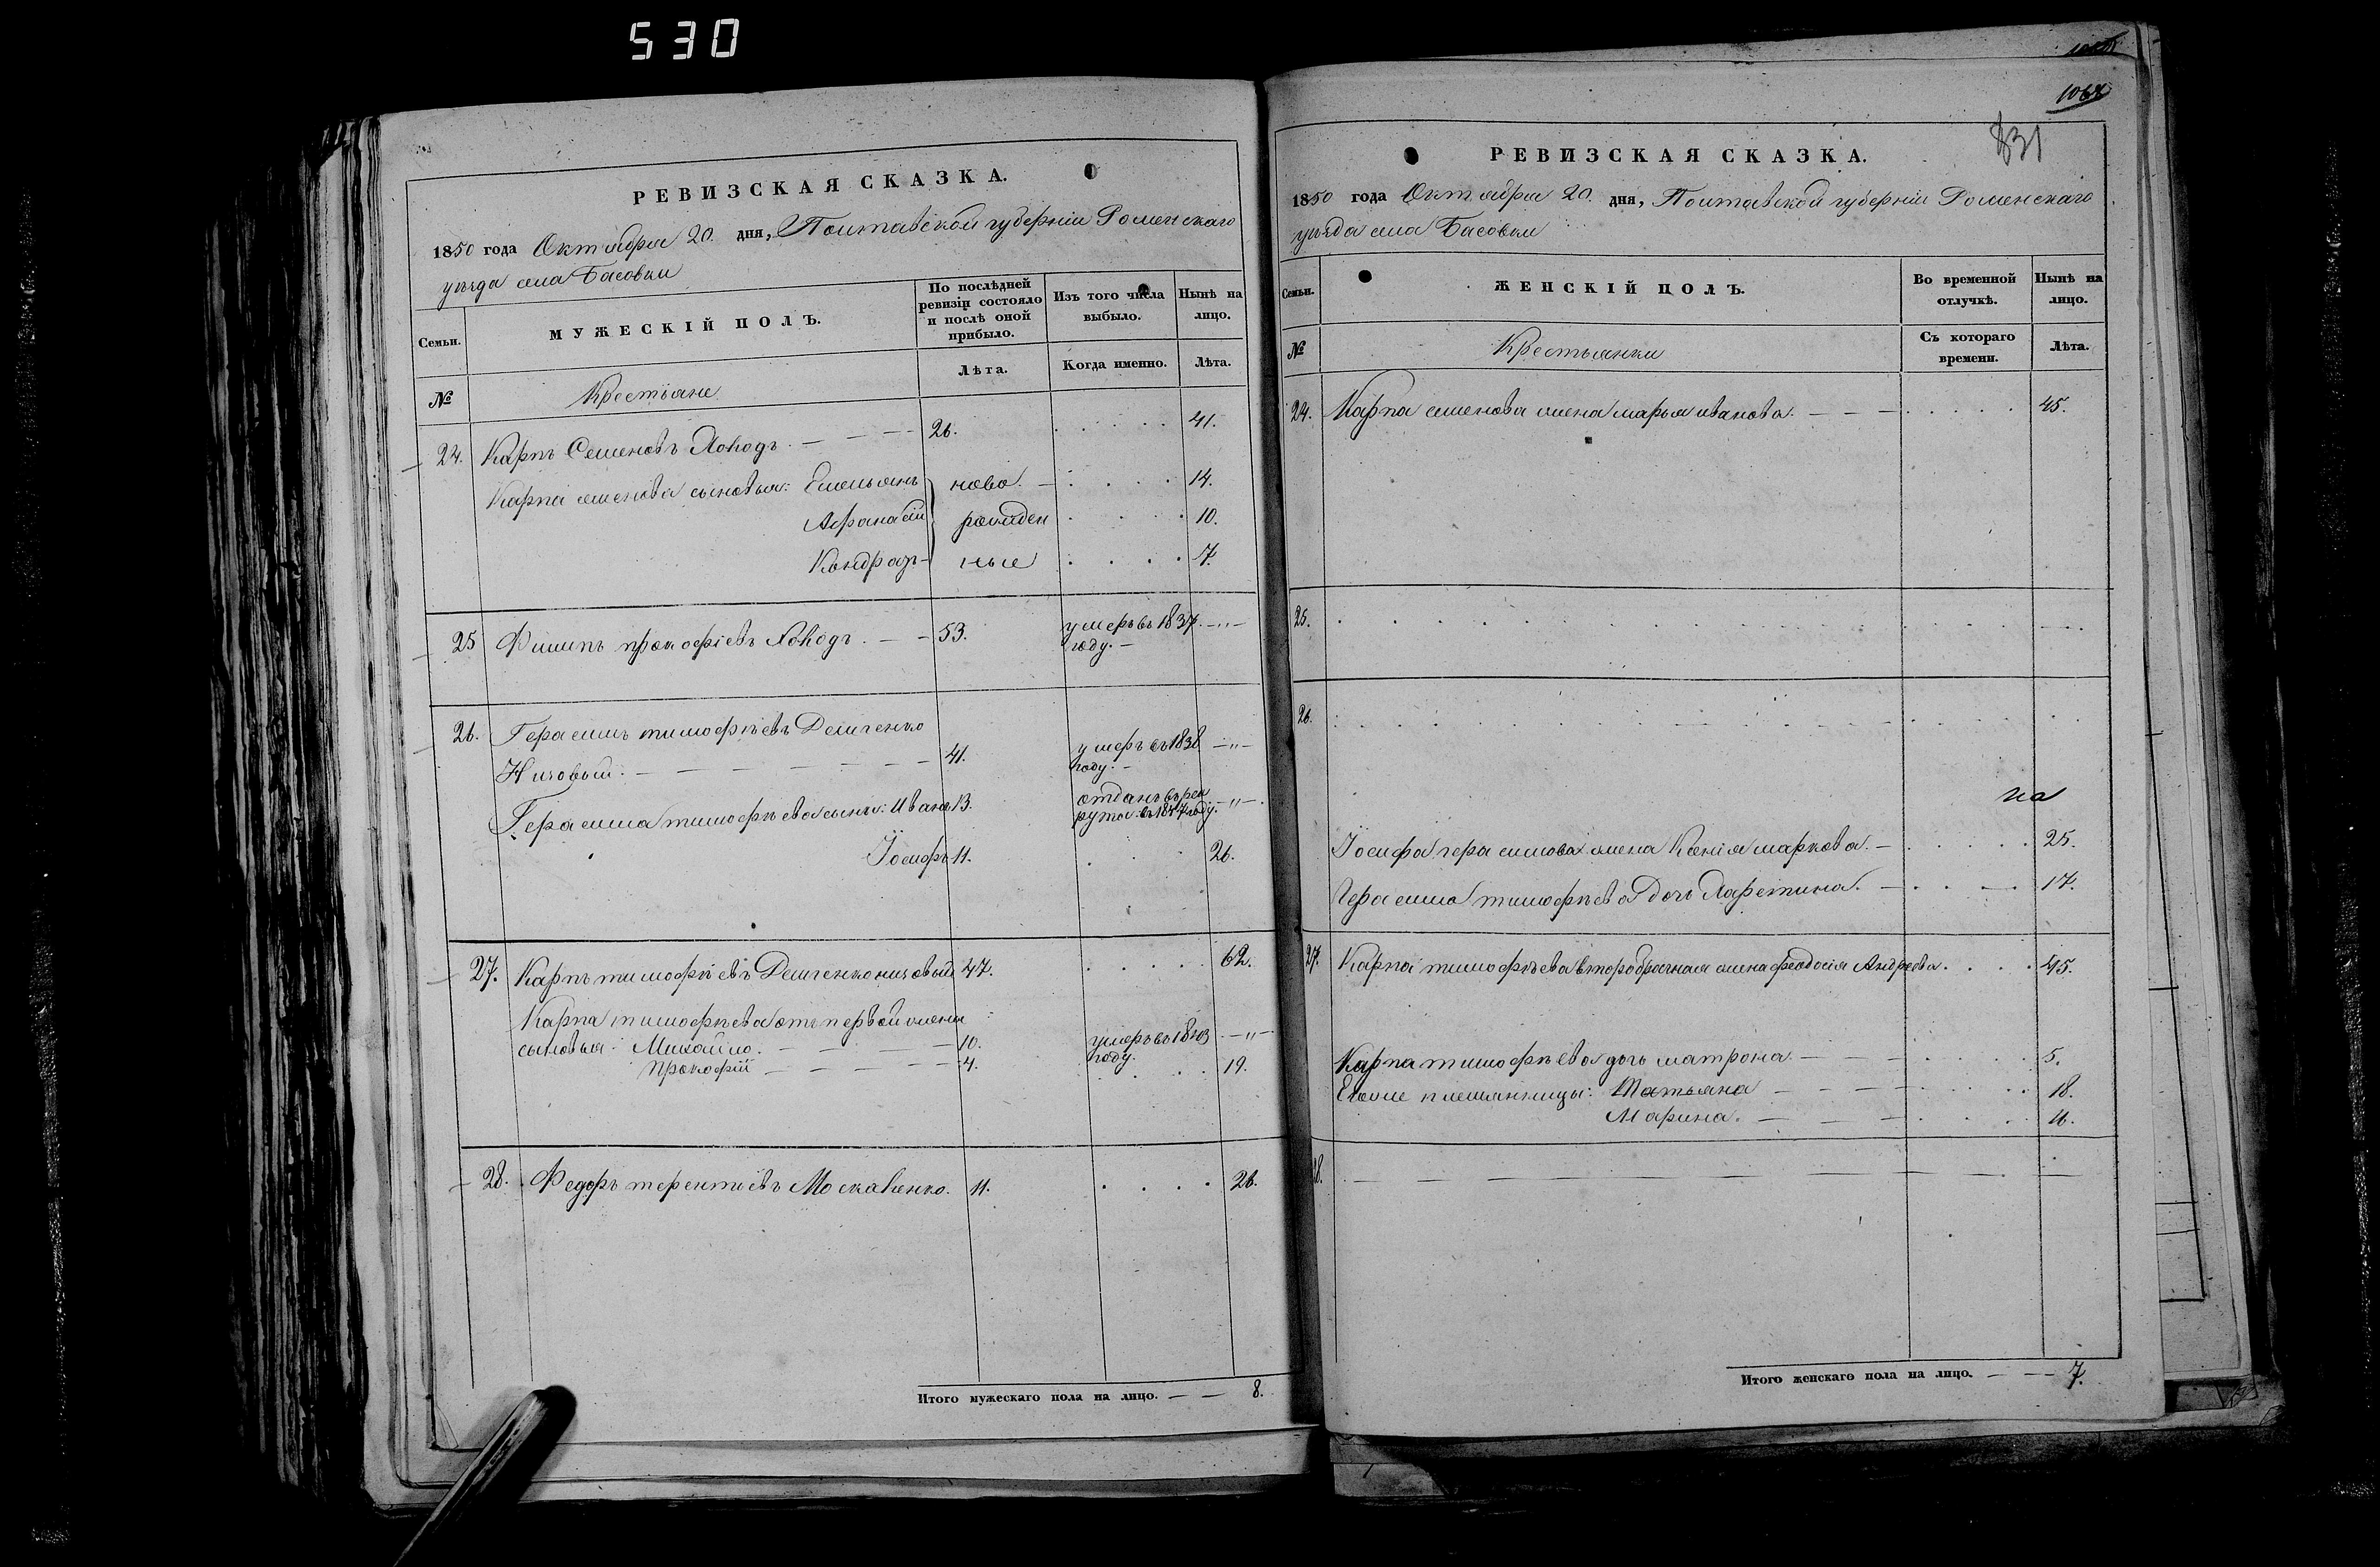 530
РЕВИЗСКАЯ СКАЗКА.
1850 года Октября 20. дня, Полтавской губерніи Роменскаго
уѣзда села Басовки
Семьи.
МУЖЕСКІЙ ПОЛЪ.
По послѣдней ревизіи состояло и послѣ оной прибыло.
Изъ того числа выбыло.
Нынѣ на лицо.
№
Крестьяне
Лѣта.
Когда именно.
Лѣта.
24. Карпъ Семеновъ 26. 41.
Карпа семенова сыновья: Емельянъ ново 14.
Афанасій рожден 10.
Кондратъ ные 7.
25 Филипъ прокофіевъ 53. умеръ въ 1837
году.
26. Герасимъ тимофѣевъ Демченко
Низовый. 41. умеръ въ 1838
году.
Герасима тимофѣева сынъ: Иванъ 13. отданъ въ рек
руты въ 1847 году.
Іосифъ 11. 26.
27. Карпъ тимофѣевъ Демченко низовый 47. 62.
Карпа тимофѣева отъ первой жены
сыновья: Михайло. 10. умеръ въ
году.
Прокофій 4. 19.
28. Федоръ терентіевъ Москаленко. 11. 26.
Итого мужескаго пола на лицо. 8.
1068
831
РЕВИЗСКАЯ СКАЗКА.
1850 года Октября 20. дня, Полтавской губерніи Роменскаго
уѣзда села Басовки
Семьи.
ЖЕНСКІЙ ПОЛЪ.
Во временной отлучкѣ.
Нынѣ на лицо.
№
Крестьянки
Съ котораго времени.
Лѣта.
24. Карпа семенова жена марья иванова. 45.
25.
26.
на
Іосифа герасимова жена Ксенія маркова. 25.
Герасима тимофѣева дочь 17.
27. Карпа тимофѣева второбрачная жена феодосія Андреева. 45.
Карпа тимофѣева дочь матрона. 5.
Его же племянницы: Татьяна 18.
Марина.
28.
Итого женскаго пола на лицо. 7.